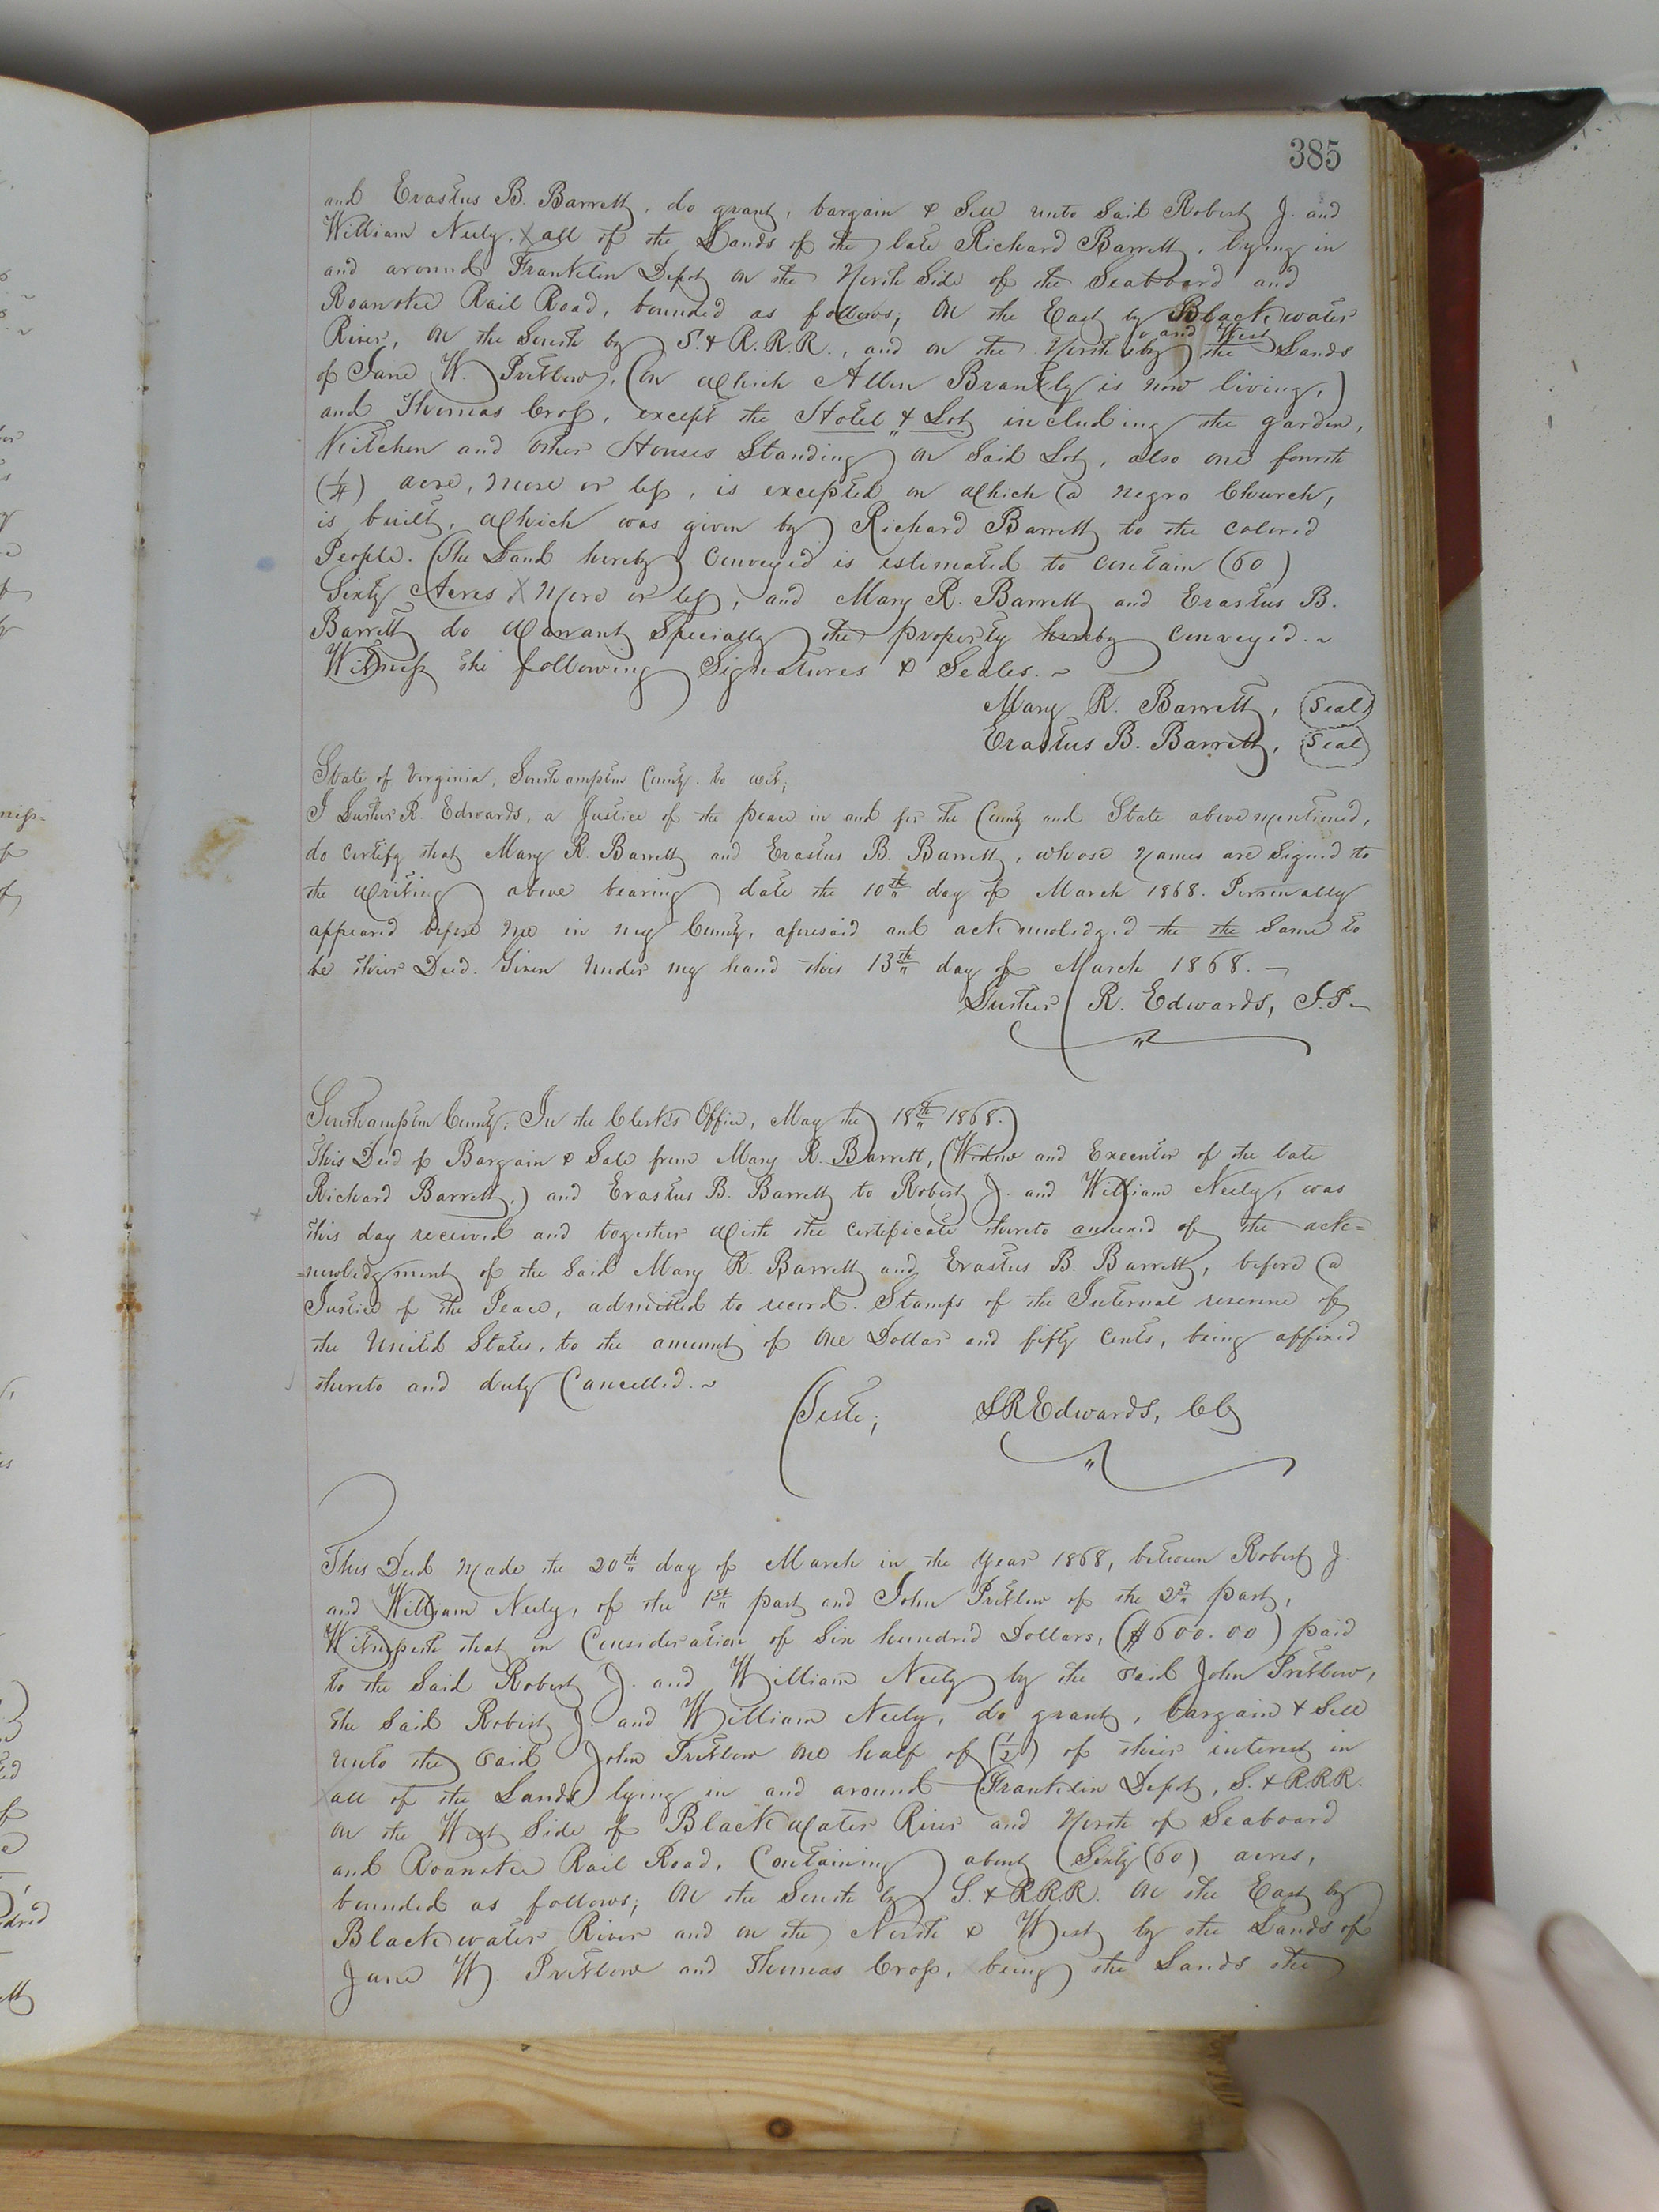 385
and Erastus B. Barrett, do grant, bargain & Sell unto Said Robert J. and
William Neely, X all of the Lands of the late Richard Barrett, lying in
and around Franklin Depot on the North Side of the Seaboard and
Roanoke Rail Road, bounded as follows; On the East by Blackwater
River, On the South by S. & R. R. R., and on the North and West by the Lands
of Jane W. Pretlow, (on which Allen Brantly is now living,)
and Thomas Cross, except the Hotel & Lot including the garden,
Kitchen and other Houses Standing on Said Lot, also one fourth
(1/4) acre, more or less, is excepted on which a negro Church,
is built, which was given by Richard Barrett to the colored
People. The Land hereby Conveyed is estimated to Contain (60)
Sixty Acres X more or less, and Mary R. Barrett and Erastus B.
Barrett do Warrant Specially the property hereby Conveyed. ~
Witness the following Signatures & Seales. ~
Mary R. Barrett, Seal
Erastus B. Barrett, Seal
State of Virginia, Southampton County. to wit;
I R. Edwards, a Justice of the peace in and for the County and State above mentioned,
do Certify that Mary R. Barrett and Erastus B. Barrett, whose names are Signed to
the Writing above bearing date the 10th day of March 1868. Personally
appeared before me in my County, aforesaid and acknowledged the the Same to
be their Deed. Given Under my hand this 13th day of March 1868. —
R. Edwards, J.P —
Southampton County, In the Clerk's Office, May the 18th 1868.
This Deed of Bargain & Sale from Mary R. Barrett, (Widow and Executor of the late
Richard Barrett,) and Erastus B. Barrett to Robert J. and William Neely, was
this day received and together with the certificate thereto annexed of the ack=
=nowledgment of the Said Mary R. Barrett and Erastus B. Barrett, before a
Justice of the Peace, admitted to record. Stamps of the Internal revenue of
the United States, to the amount of One Dollar and fifty Cents, being affixed
thereto and duly Cancelled. ~
Teste; LREdwards, Clk
This Deed Made the 20th day of March in the Year 1868, between Robert J.
and William Neely, of the 1st part and John Pretlow of the 2d part,
Witnesseth that in Consideration of Six hundred Dollars, ($600.00) paid
to the Said Robert J. and William Neely by the Said John Pretlow,
the Said Robert J. and William Neely, do grant, bargain & Sell
unto the Said John Pretlow one half of (1/2) of their interest in
all of the Lands lying in and around Franklin Depot, S. & R.R.R.
on the West Side of Black Water River and North of Seaboard
and Roanoke Rail Road, Containing about Sixty (60) acres,
bounded as follows; On the South by S. & R.R.R. On the East by
Blackwater River and on the North & West by the Lands of
Jane W. Pretlow and Thomas Cross, being the Lands the